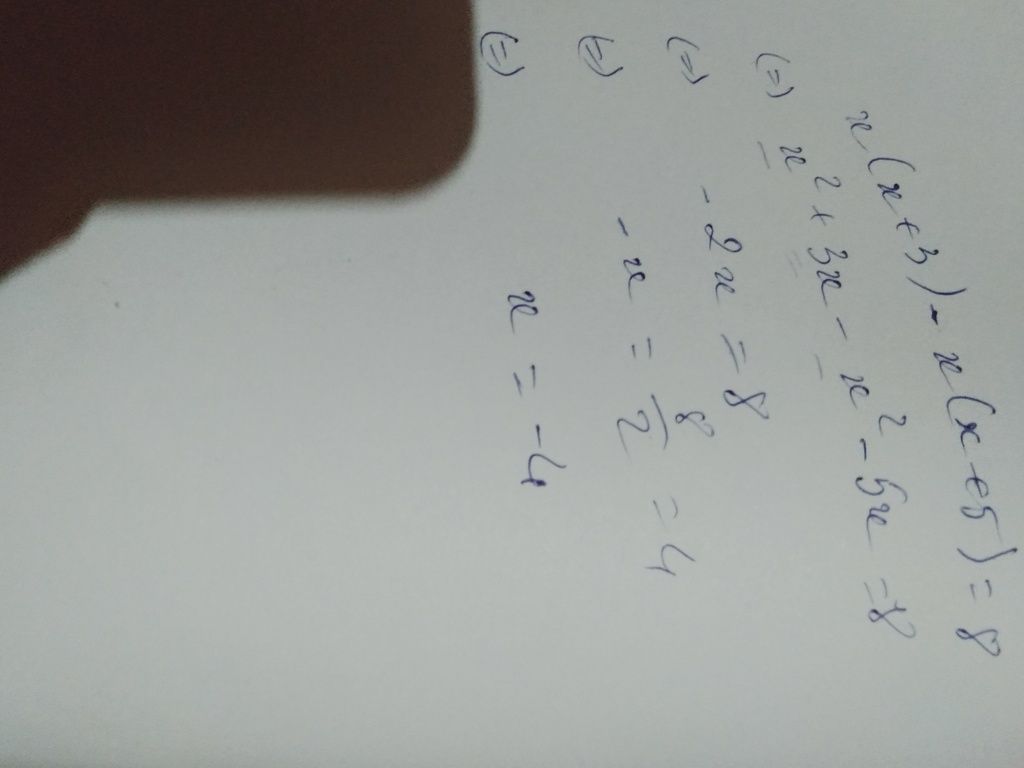 x(x+3) - x(x+5) = 8
(=) x² + 3x - x² - 5x = 8
(=) - 2x = 8
(=) - x = 8/2 = 4
(=) x = -4